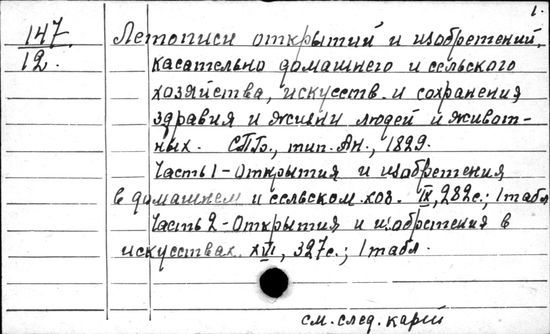 1.
147
12.
Летописи открытий и изобретений,
касательно домашнего и сельского
хозяйства, искусств и сохранения
здравия и жизни людей и живот-
ных. СПб., тип. Ан., 1829.
Часть 1 - Открытия и изобретения
в домашнем и сельском хоз. IX, 282 с.; 1 табл
Часть 2 - Открытия и изобретения в
искусствах. XVI, 327 с.; 1 табл.
см. след. карт